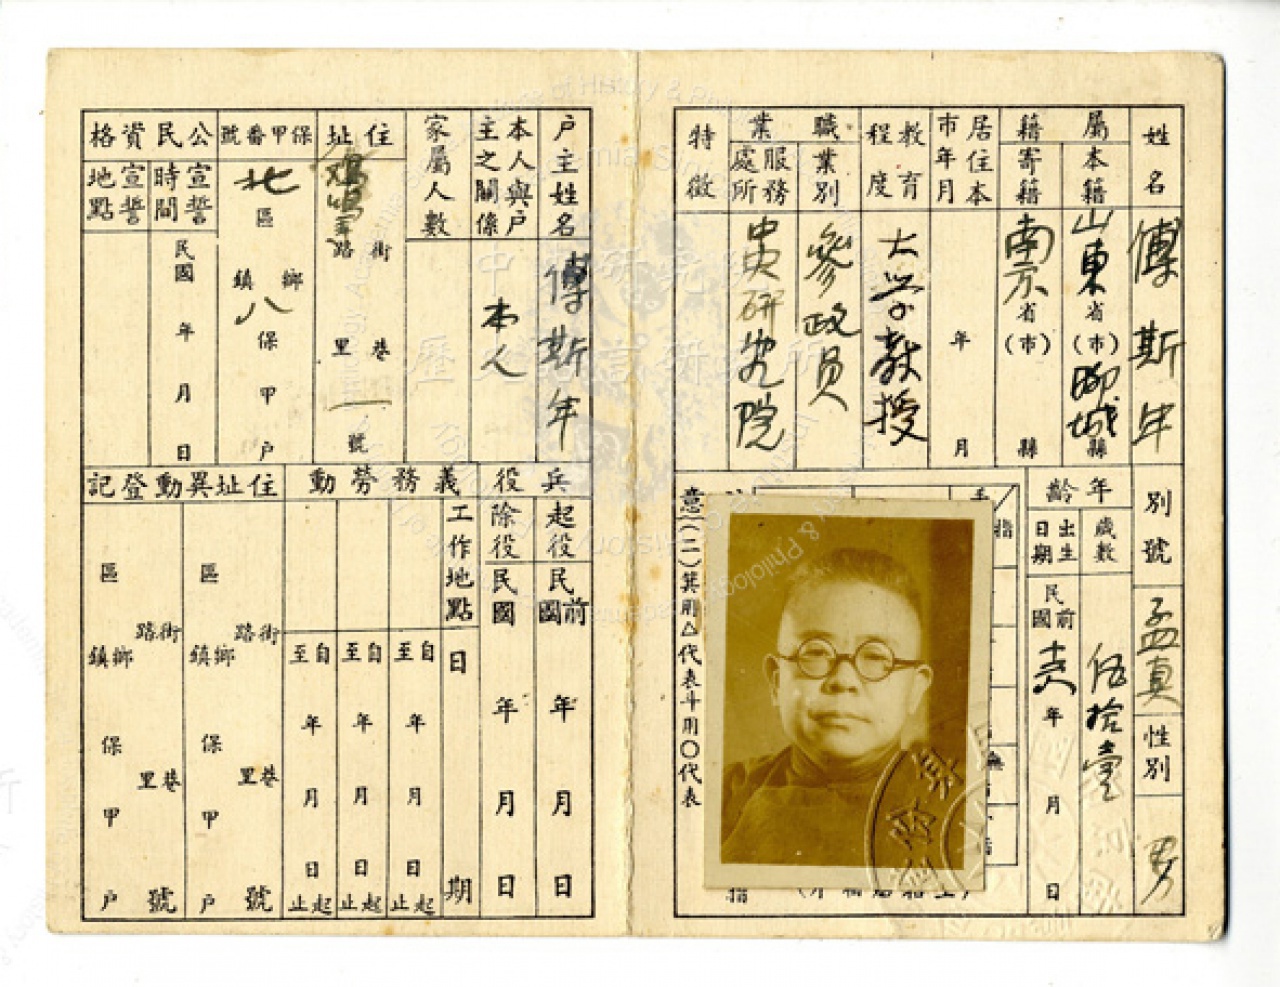 姓名
傅斯年
別號
孟真
性別
男
屬籍
本籍
山東省(市)聊城縣
寄籍
南京省(市)縣
年齡
歲數
伍拾壹
出生日期
民國前
年月日
居住本市年月
年月
教育程度
大學教授
職業
業別
參政員
服務處所
中央研究院
特徵
意(二)箕用△代表斗用〇代表
戶主姓名
傅斯年
本人與戶主之關係
本人
家屬人數
住址
雞鳴路街
里巷
一號
保甲番號
北區
鎮鄉
八保
甲
戶
公民資格
宣誓時間
民國年月日
宣誓地點
兵役
起役
民國前年月日
除役
民國年月日
義務勞動
工作地點
日期
自至年月日起止
自至年月日起止
自至年月日起止
住址異動登記
區鎮鄉保甲戶
路街里巷號
區鎮鄉保甲戶
路街里巷號